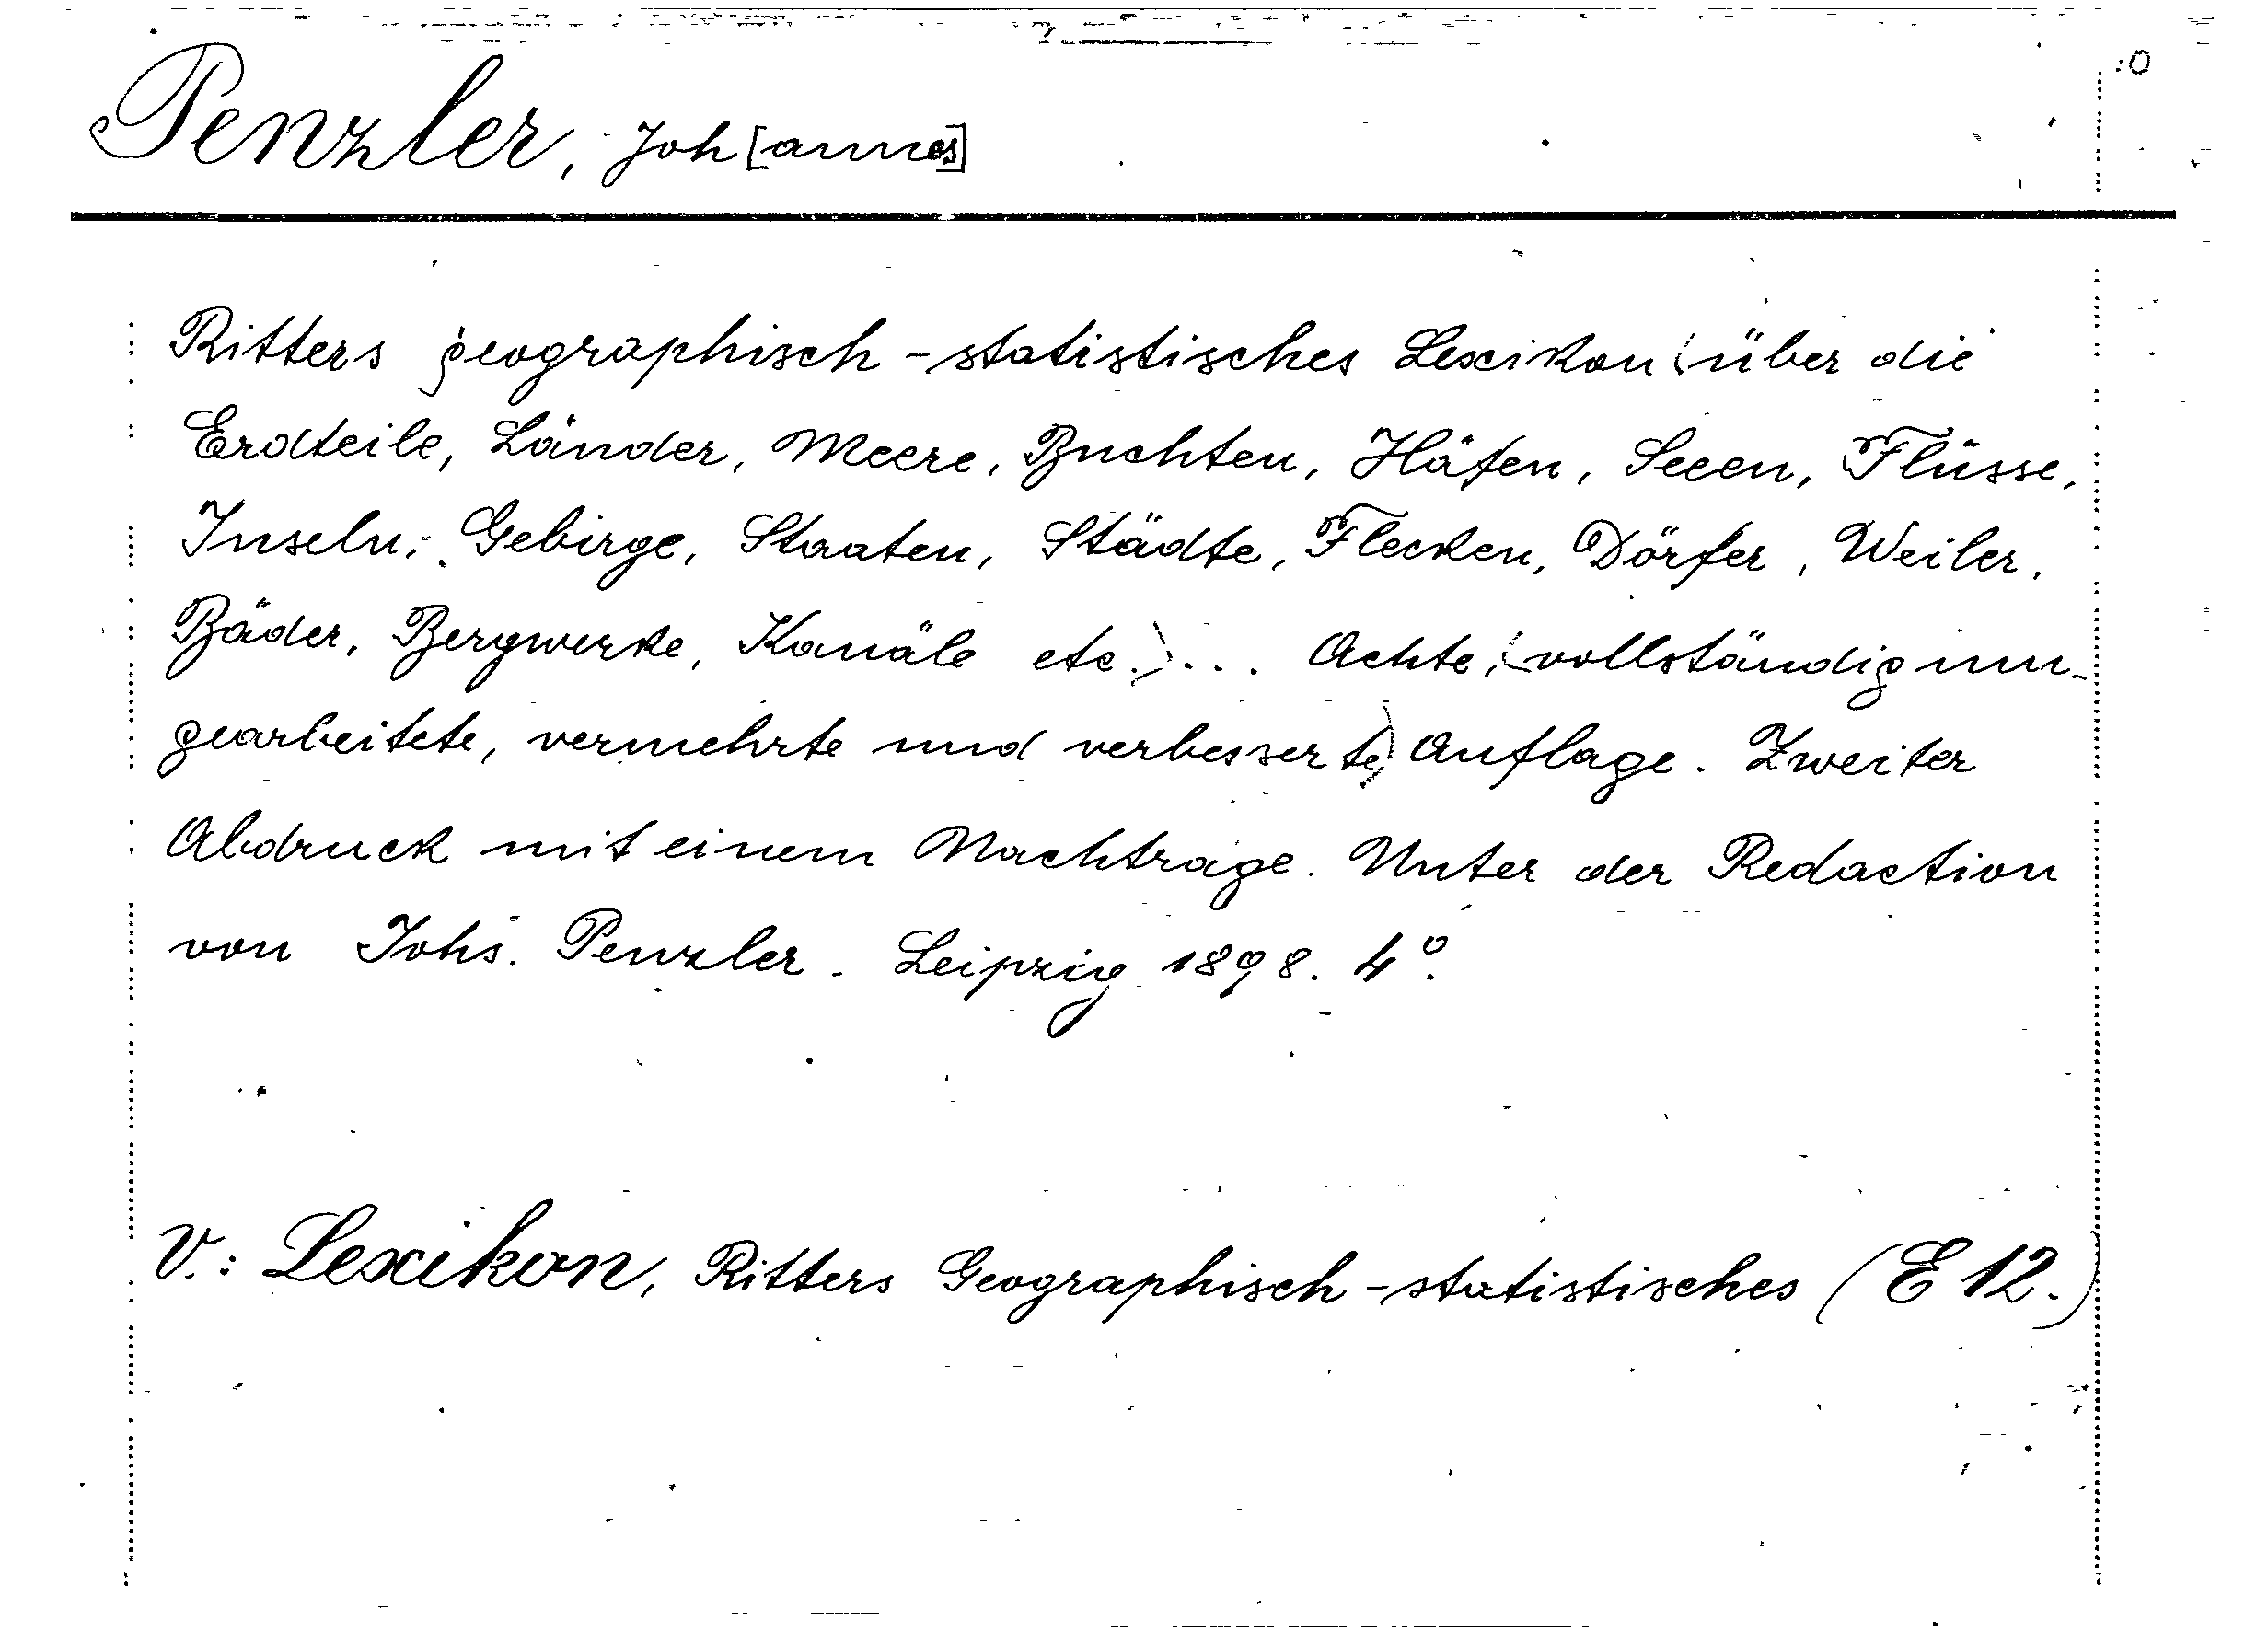 Penzler, Joh[annes]
Ritters geographisch-statistisches Lexikon (über die
Erdteile, Länder, Meere, Buchten, Häfen, Seeen, Flüsse,
Inseln, Gebirge, Staaten, Städte, Flecken, Dörfer, Weiler,
Bäder, Bergwerke, Kanäle etc.)... Achte, (vollständig um-
gearbeitete, vermehrte und verbesserte) Auflage. Zweiter
Abdruck mit einem Nachtrage. Unter der Redaction
von Johs. Penzler. Leipzig 1898. 4°.
V.: Lexikon, Ritters Geographisch-statistisches (E 12.)